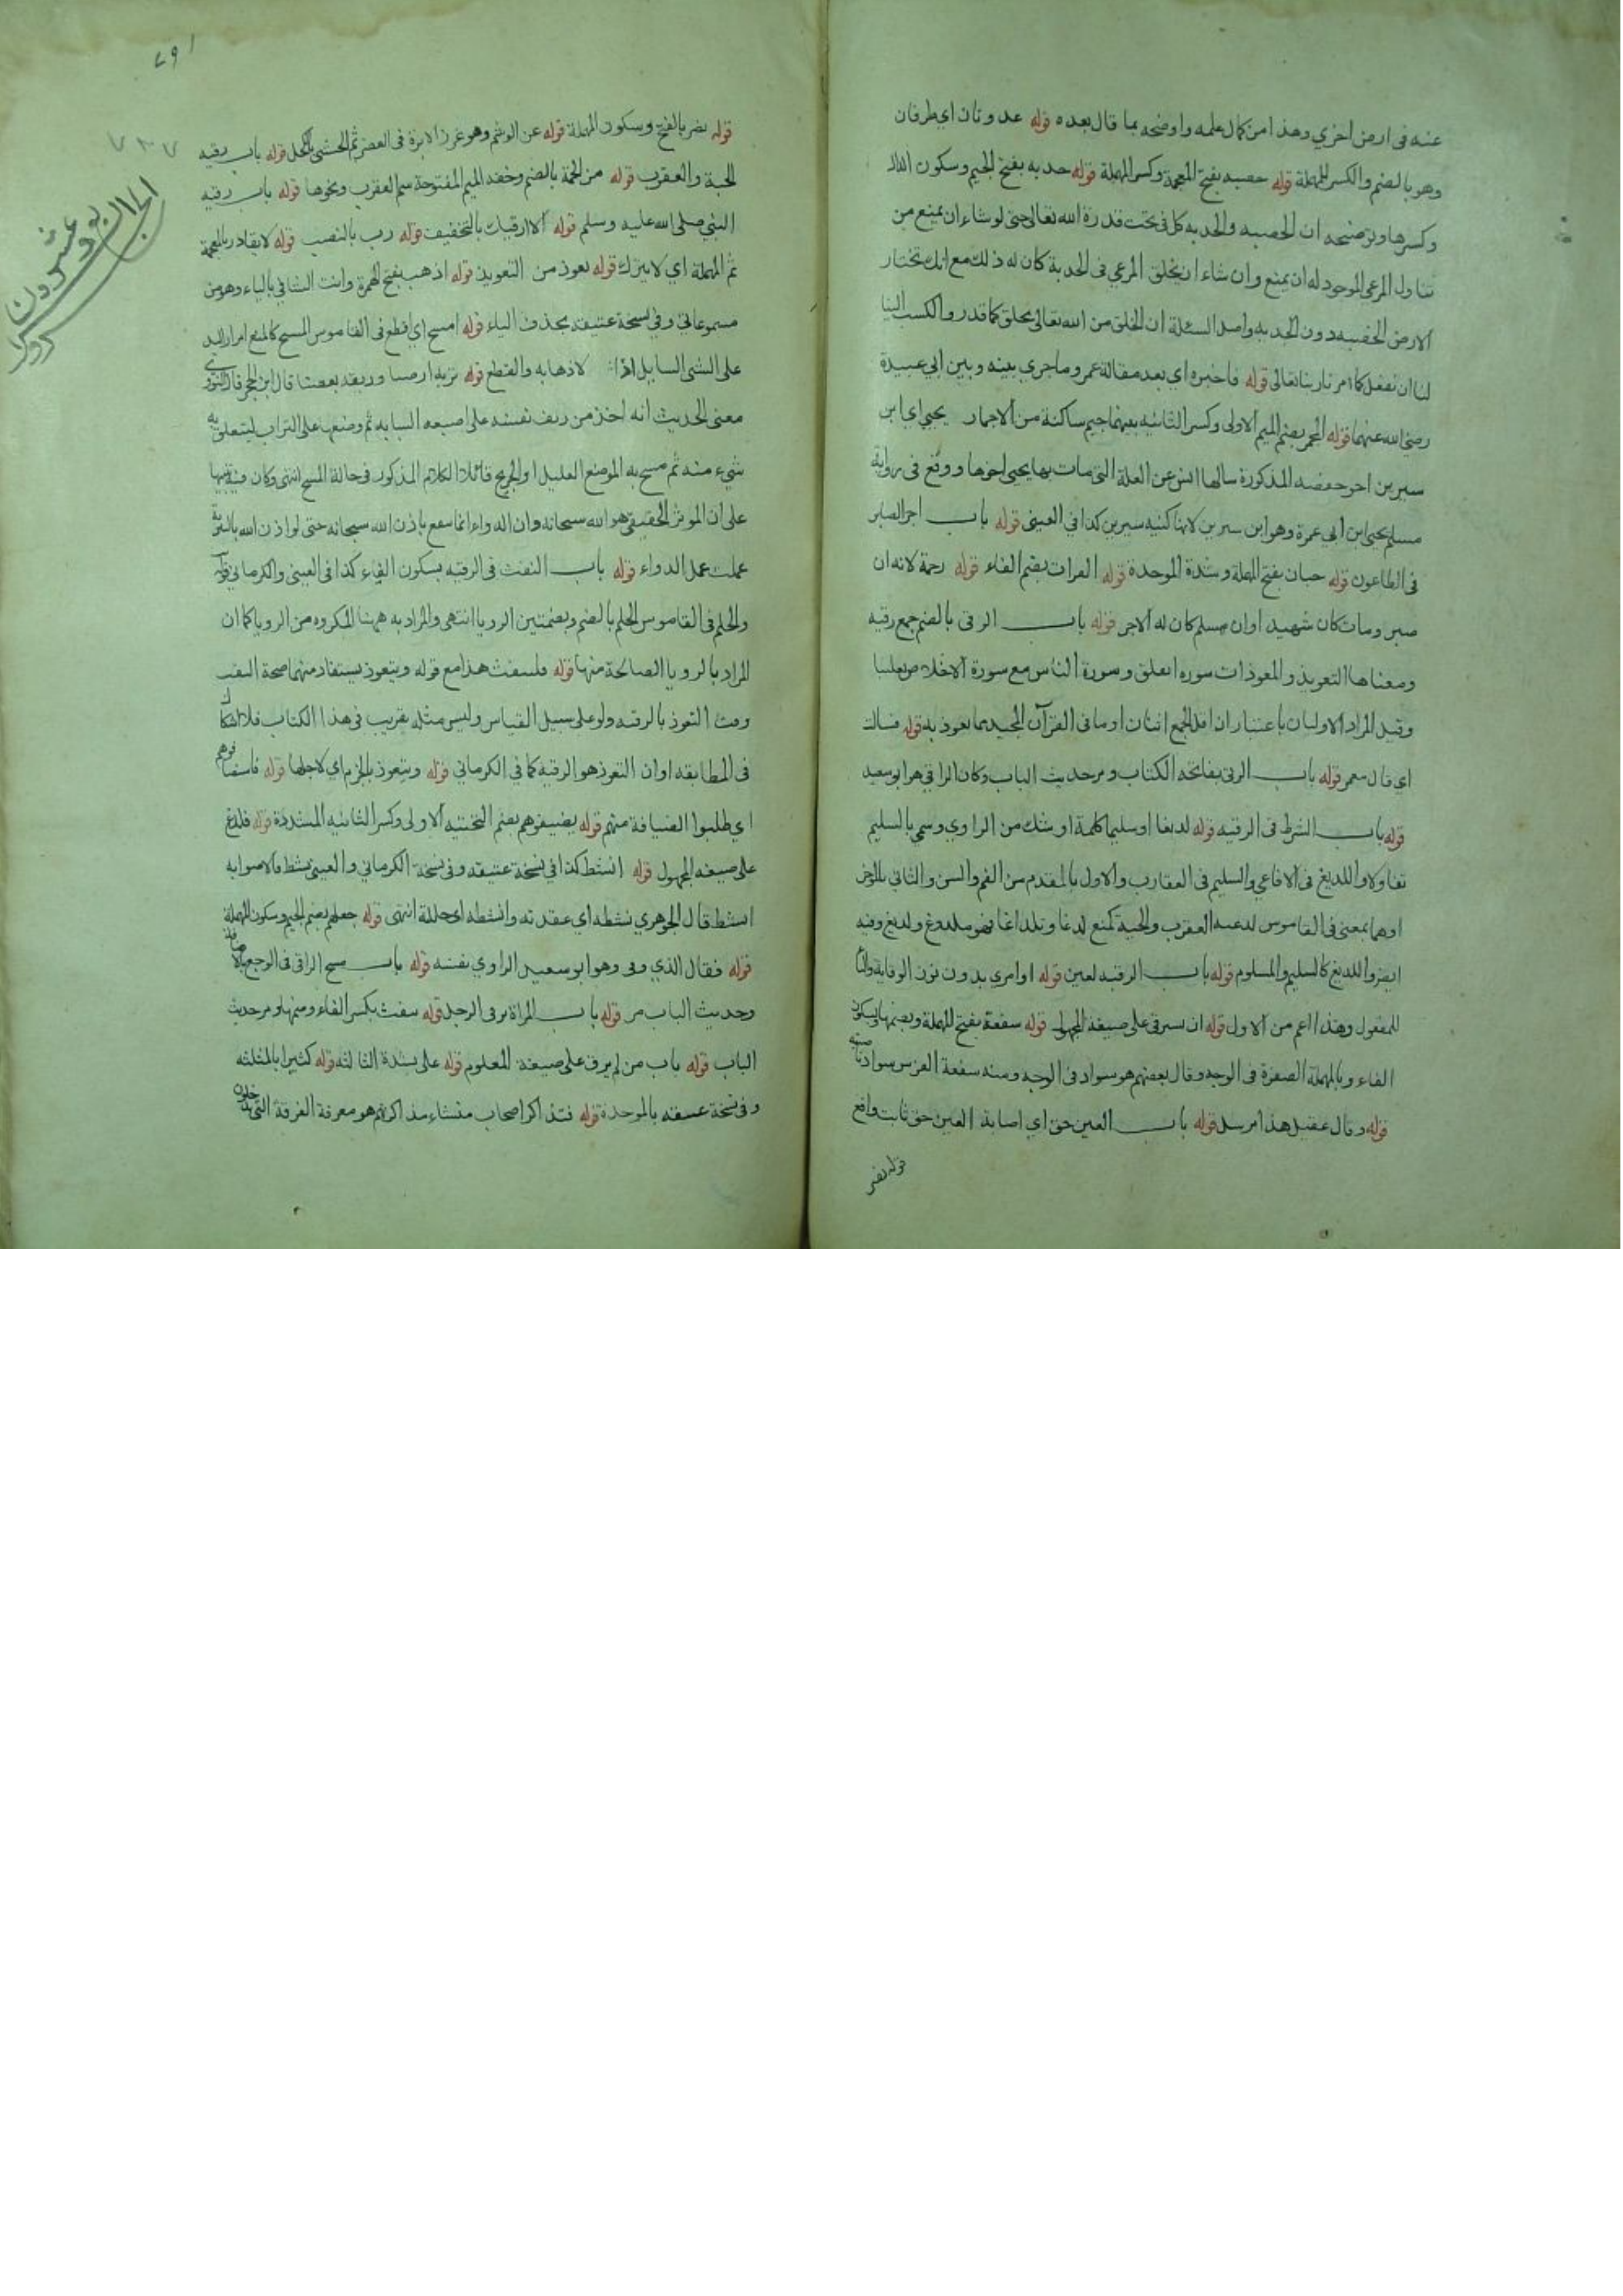 عنه في ارض اخري وهذا من كمال علمه واوضحه بما قال بعده قوله عدوتان اي طرفان
وهو بالضم والكسر للمهملة قوله خصبه بفتح المعجمة وكسر المهملة قوله جدبه بفتح الجيم وسكون الدال
وكسرها وتوضيحه ان الخصبه والجدبه كل في تحت قدرة الله تعالى حتى لو شاء ان يمنع من
تناول المرعى الموجود له ان يمنع وان شاء ان يخلق المرعي في الجدبة كان له ذلك مع انك تختار
الارض الخصبه دون الجدبه واصل المسئلة ان الخلق من الله تعالى يخلق كما قدر والكسب الينا
لنا ان نفعل كما امرنا ربنا تعالى قوله فاخبره اي بعد مقالة عمر وما جري بينه وبين ابي عبيدة
رضي الله عنهما قوله المجمر بضم الميم الاولى وكسر الثانيه بينهما جيم ساكنة من الاجمار يحيي اي ابن
سيرين اخو حفصه المذكورة سالها انس عن العلة التي مات بها يحيى اخوها ووقع في رواية
مسلم يحيى ابن ابي عمرة وهو ابن سيرين لانها كنيه سيرين كذا في العيني قوله باب اجر الصابر
في الطاعون قوله حبان بفتح المهملة وشدة الموحدة قوله الفرات بضم الفاء قوله رحمة لانه ان
صبر ومات كان شهيدا وان سلم كان له الاجر قوله باب الرقى بالضم جمع رقيه
ومعناها التعويذ والمعوذات سوره الفلق وسورة الناس مع سورة الاخلاص تغليبا
وقيل المراد الاوليان باعتبار ان اقل الجمع اثنان او ما في القرآن المجيد مما يعوذ به قوله فسالت
اي قال معمر قوله باب الرقى بفاتحه الكتاب ومر حديث الباب وكان الراقي هو ابو سعيد
قوله باب الشرط في الرقيه قوله لديغا او سليما كلمة او شك من الراوي وسمي بالسليم
تفاولا واللديغ في الافاعي والسليم في العقارب والاول بالمقدم من الفم والسن والثاني بالمؤخر
او هما بمعنى في القاموس لدغته العقرب والحية كمنع لدغا وتلداغا فهو ملدوغ ولديغ وفيه
ايضا واللديغ كالسليم والمسلوم قوله باب الرقيه لعين قوله او امري بدون نون الوقاية والبناء
للمفعول وهذا اعم من الاول قوله ان يسترقى على صيغة المجهول قوله سفعة بفتح المهملة وبضمها وسكون
الفاء وبالمهملة الصفرة في الوجه وقال بعضهم هو سواد في الوجه ومنه سفعة الفرس سواد ناصيته
قوله وقال عقيل هذا مرسل قوله باب العين حق اي اصابة العين حق ثابت واقع
قوله نضر
١٦٧
٧٣٧
الجزء الرابع وعشرون
قوله نضر بالفتح وسكون المهملة قوله عن الوشم وهو غرز الابرة في العضو ثم الحشي بالكحل قوله باب رقيه
الحية والعقرب قوله من الحمة بالضم وخفة الميم المفتوحة سم العقرب ونحوها قوله باب رقيه
النبي صلى الله عليه وسلم قوله الا ارقيك بالتخفيف قوله رب بالنصب قوله لا يغادر بالمعجمة
ثم المهملة اي لا يترك قوله يعوذ من التعويذ قوله اذهب بفتح الهمزة وانت الشافي بالياء وهو من
مسموعاتي وفي نسخة عتيقه بحذف الياء قوله امسح اي اقطع في القاموس المسح كالمنع امرار اليد
على الشي السايل لاذهابه والقطع قوله تربة ارضنا وريقة بعضنا قال ابن الحجر قال النووي
معنى الحديث انه اخذ من ريق نفسه على اصبعه السبابه ثم وضعها على التراب ليتعلق به
شيء منه ثم مسح به الموضع العليل او الجريح قائلا الكلام المذكور في حالة المسح انتهى وكان فيه تنبيها
على ان الموثر الحقيقي هو الله سبحانه وان الدواء انما ينفع باذن الله سبحانه حتى لو اذن الله بالتربة
عملت عمل الدواء قوله باب النفث في الرقيه بسكون الفاء كذا في العيني والكرماني
والحلم في القاموس الحلم بالضم وبضمتين الرويا انتهى والمراد به ههنا المكروه من الرويا كما ان
المراد بالرويا الصالحة منها قوله فلينفث هذا مع قوله ويتعوذ يستفاد منهما صحة النفث
وقت التعوذ بالرقيه ولو على سبيل القياس وليس مثله بقريب في هذا الكتاب فلا اشكال
في المطابقه او ان التعوذ هو الرقيه كما في الكرماني قوله ويتعوذ بالجزم اي لاجلها قوله فاستضافوهم
اي طلبوا الضيافة منهم قوله يضيفوهم بضم التحتيه الاولى وكسر الثانيه المشددة قوله فلدغ
على صيغه المجهول قوله انشط كذا في نسخة عتيقه وفي نسخة الكرماني والعيني نشط والاصوابه
انشط قال الجوهري نشطه اي عقدته وانشطه اي حللته انتهى قوله جعلهم بضم الجيم وسكون المهملة
قوله فقال الذي رقى وهو ابو سعيد الراوي نفسه قوله باب مسح الراقي في الوجع بالاضافة
وحديث الباب مر قوله باب المراة ترقي الرجل قوله ينفث بكسر الفاء وضمها ومر حديث
الباب قوله باب من لم يرق على صيغة المعلوم قوله علي بشدة الثالثه قوله كثيرا بالمثلثه
وفي نسخة عتيقه بالموحدة قوله فتذاكر اصحاب منشاء مذاكرتهم هو معرفة الفرقة التي يدخلون